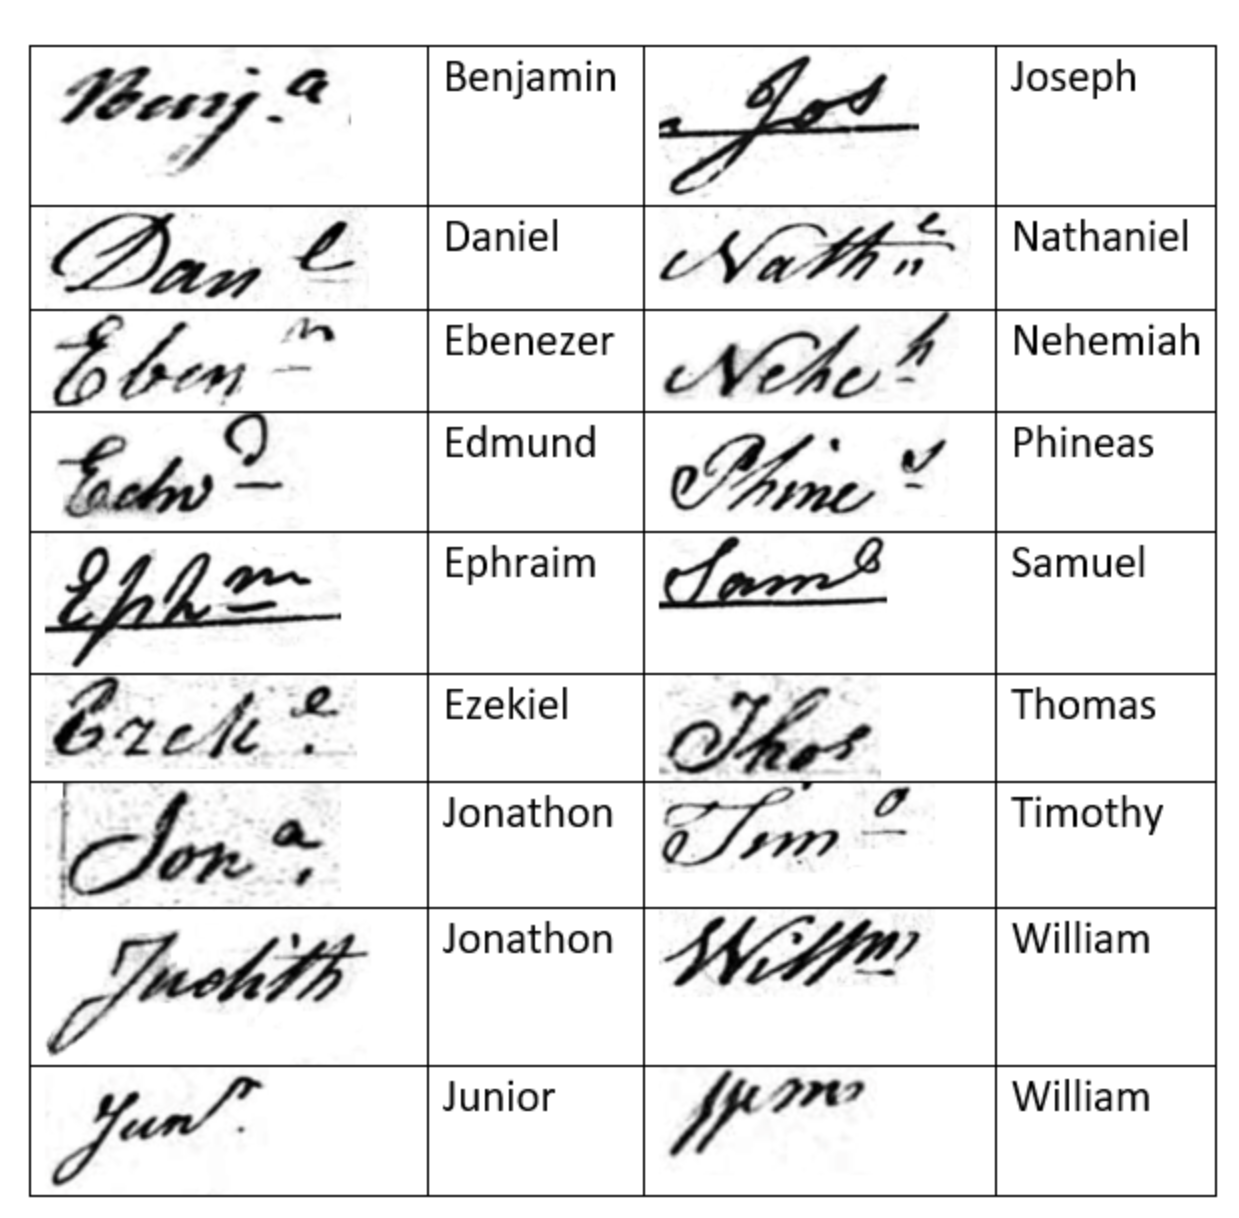 Benj.a Benjamin Jos Joseph
Dan l Daniel Nath l Nathaniel
Eben r Ebenezer Nehe h Nehemiah
Edm d Edmund Phine s Phineas
Eph m Ephraim Saml Samuel
Ezek l Ezekiel Thos Thomas
Jon a Jonathon Tim o Timothy
Judith Jonathon Willm William
Junr. Junior Wm William